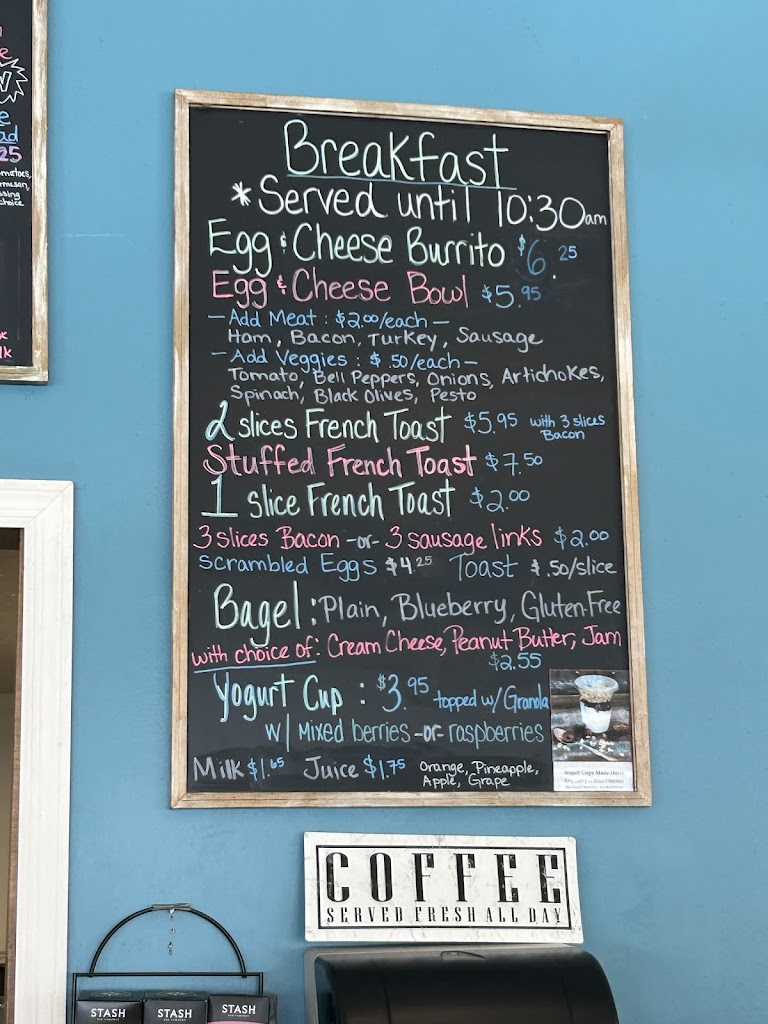 ad
25
omatoes,
choice
lk
Breakfast
*Served until 10:30am
Egg & Cheese Burrito $6.25
Egg & Cheese Bowl $5.95
—Add Meat: $2.00/each—
Ham, Bacon, Turkey, Sausage
—Add Veggies: $.50/each—
Tomato, Bell Peppers, Onions, Artichokes,
Spinach, Black Olives, Pesto
2 slices French Toast $5.95 with 3 slices
Bacon
Stuffed French Toast $7.50
1 slice French Toast $2.00
3 slices Bacon -or- 3 sausage links $2.00
Scrambled Eggs $4.25 Toast $.50/slice
Bagel: Plain, Blueberry, Gluten-Free
with choice of: Cream Cheese, Peanut Butter, Jam
$2.55
Yogurt Cup: $3.95 topped w/ Granola
w/ Mixed berries -or- raspberries
Milk $1.65 Juice $1.75 Orange, Pineapple,
Apple, Grape
Yogurt Cups Made Here!
COFFEE
SERVED FRESH ALL DAY
STASH
STASH
STASH